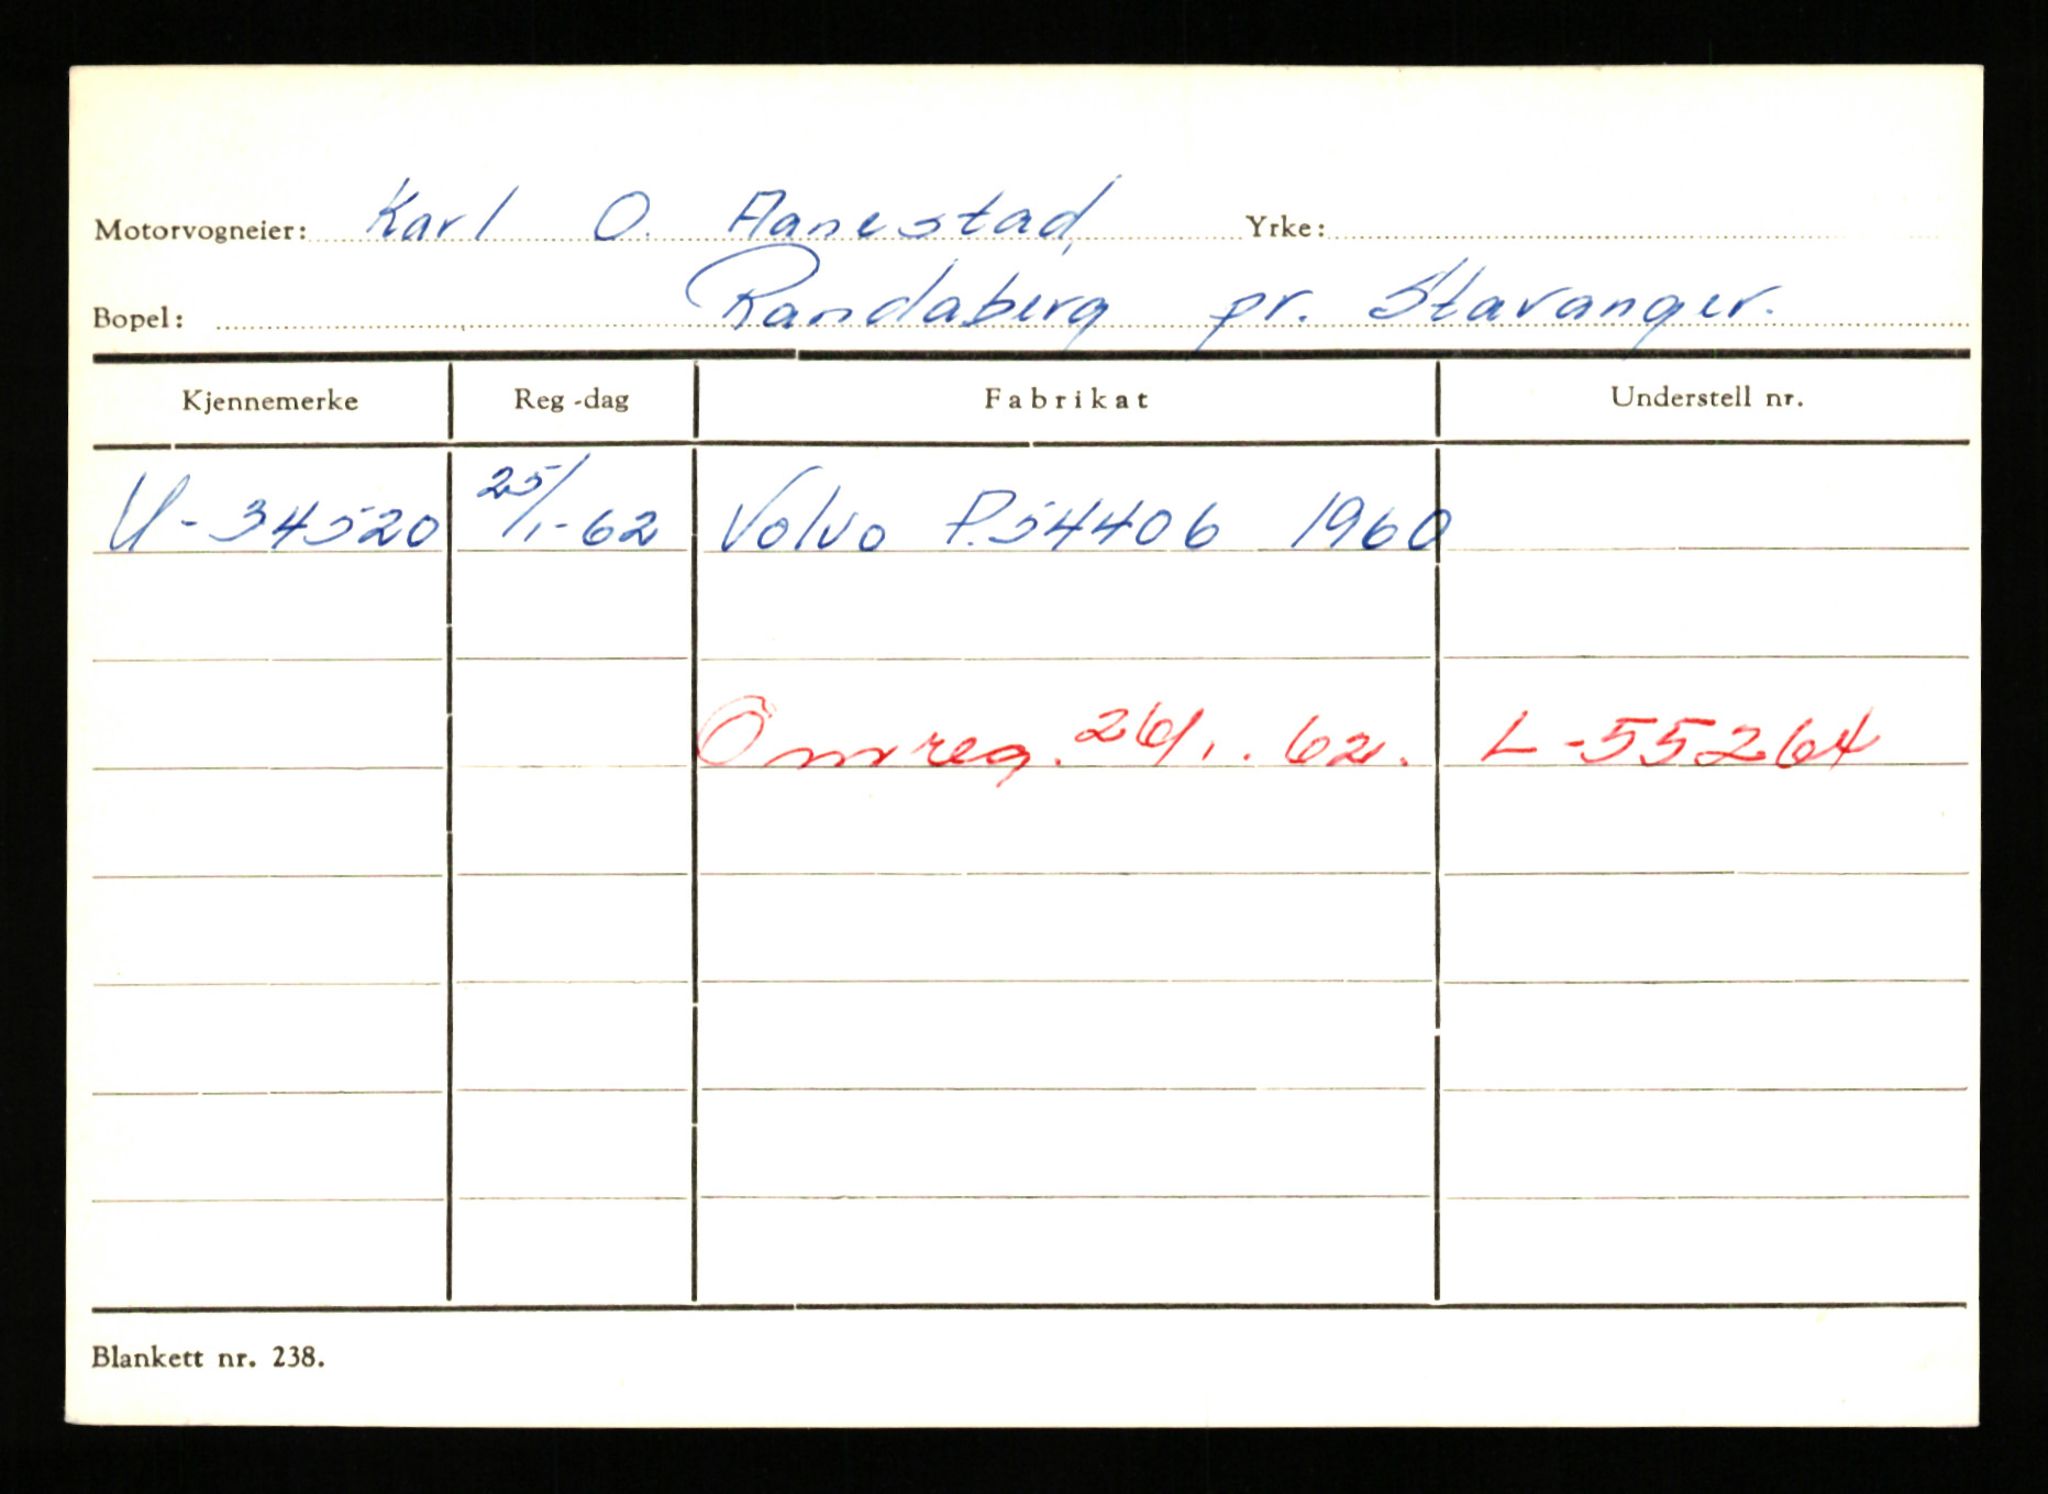 Motorvogneier: Karl O. Aanestad Yrke:
Bopel: Randaberg pr. Stavanger.
Kjennemerke Reg-dag Fabrikat Understell nr.
U-34520 25/1-62 Volvo P.54406 1960
Omreg. 26/1.62. L-55264
Blankett nr. 238.